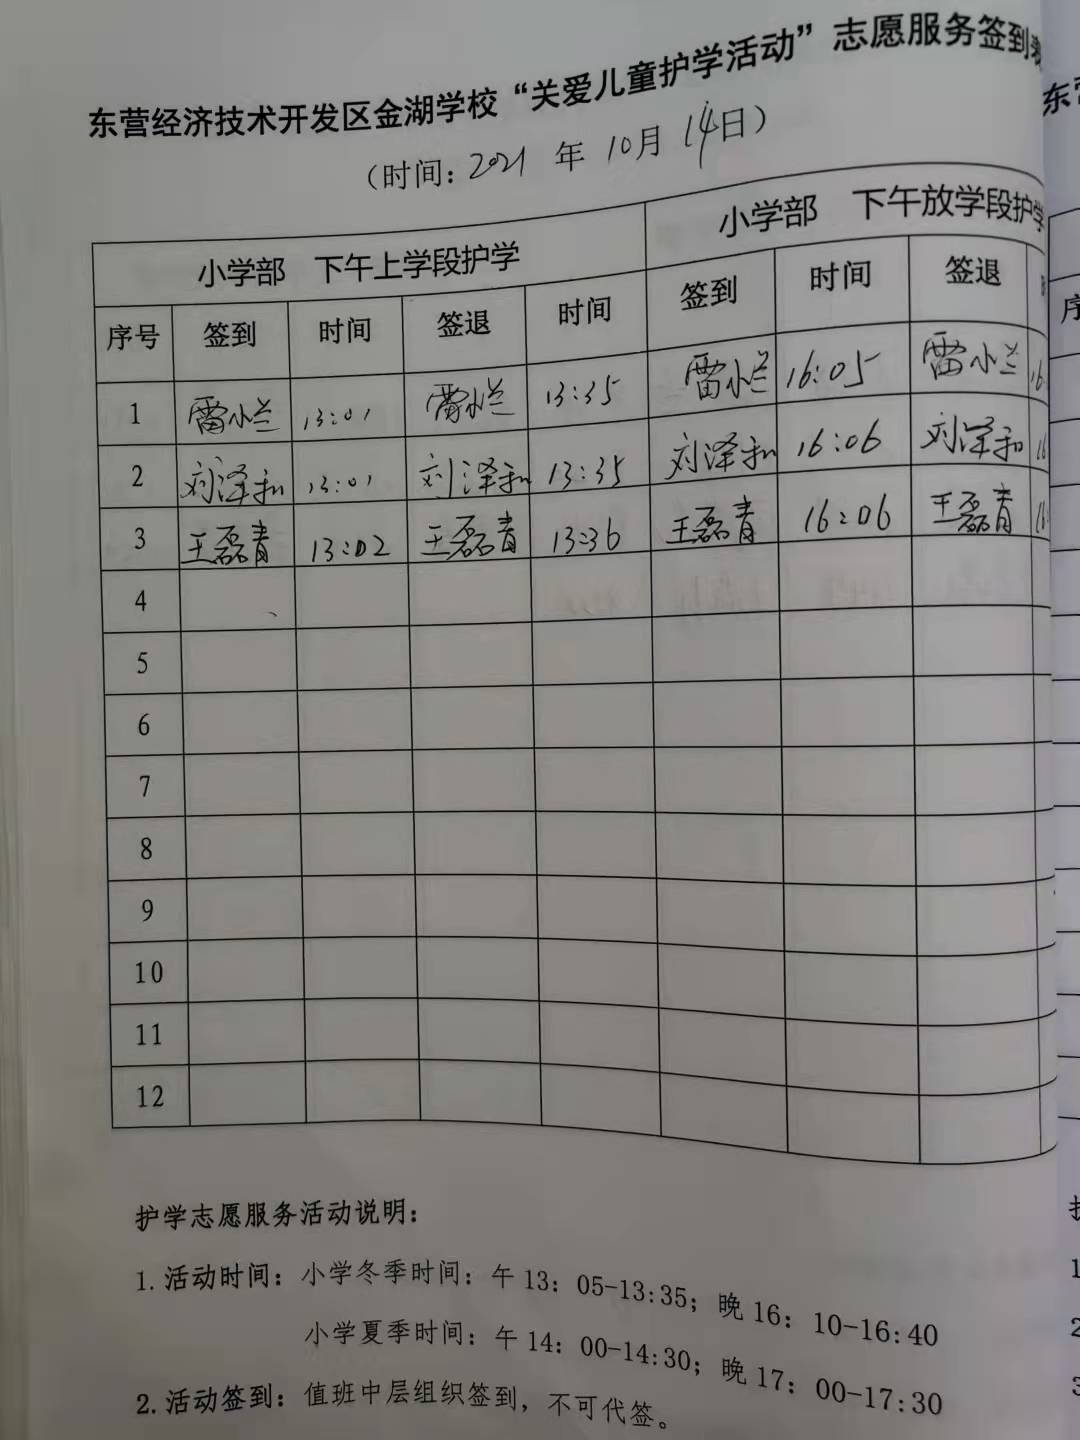 东营经济技术开发区金湖学校“关爱儿童护学活动”志愿服务签到表
（时间：2021 年 10月 14日）
小学部 下午上学段护学 小学部 下午放学段护学
序号 签到 时间 签退 时间 签到 时间 签退
1 雷小兰 13:01 雷小兰 13:35 雷小兰 16:05 雷小兰 16:
2 刘泽和 13:01 刘泽和 13:35 刘泽和 16:06 刘泽和 16
3 王磊青 13:02 王磊青 13:36 王磊青 16:06 王磊青 16:
4
5
6
7
8
9
10
11
12
护学志愿服务活动说明：
1.活动时间：小学冬季时间：午13：05-13:35；晚16：10-16:40
小学夏季时间：午14：00-14:30；晚17：00-17:30
2.活动签到：值班中层组织签到，不可代签。
东营
序
护
1
2
3